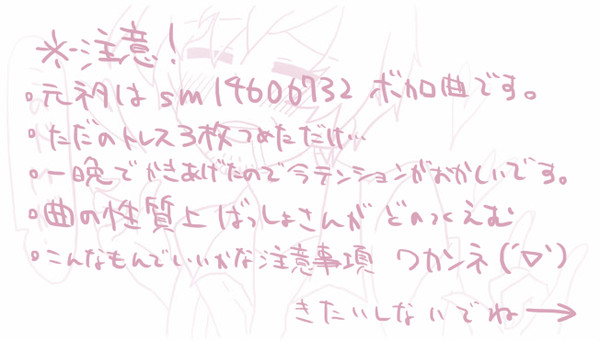 ※注意!
・元ネタは sm14606732 ボカロ曲です。
・ただのトレス3枚つめただけ…
・一晩でかきあげたので今テンションがおかしいです。
・曲の性質上 ばっしょさんが どのつくえむ
・こんなもんでいいかな注意事項 ワカンネ(´▽`)
きたいしないでね→